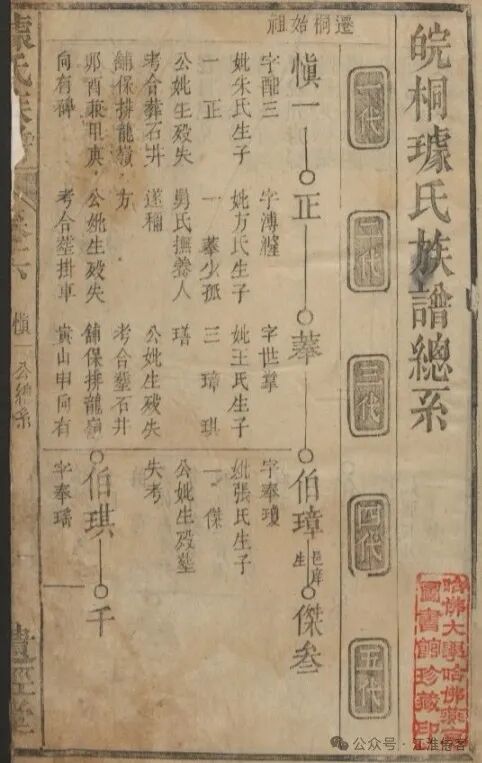 皖桐璩氏族譜總系
一代
二代
三代
四代
五代
遷桐始祖
慎一
正
菶
伯璋
邑庠生
傑叁
字配三
妣朱氏生子
一 正
公妣生殁失
考合葬石井
舖保排龍嶺
卯酉兼甲庚
向有碑
字溥
妣方氏生子
一 菶少孤
舅氏撫養人
遂稱
方
公妣生殁失
考合塟掛車
字世掌
妣王氏生子
三 璋 琪
瑨
公妣生殁失
考合塟石井
舖保排龍嶺
黄山申向有
字奉瓊
妣張氏生子
一 傑
公妣生殁塟
失考
伯琪
千
字奉瑤
氏族譜
六
慎
公總系
經堂
哈佛大學哈佛燕京
圖書館珍藏印
公众号·江淮悟客